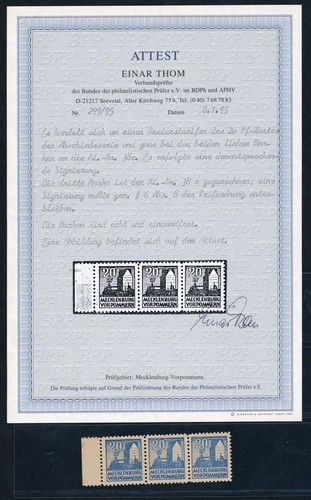 ATTEST
EINAR THOM
Verbandsprüfer
des Bundes der philatelistischen Prüfer e.V. im BDPh und APHV
D-21217 Seevetal, Alter Kirchweg 75 b, Tel. (0 40) 7 68 78 83
Nr. 299/95 Datum 8.1.95
Es handelt sich um einen Dreierstreifen des 20 Pf-Wertes
der Abschiedsserie und zwar bei den beiden linken Mar-
ken um die Mi.-Nr. 38c. Es erfolgte eine dementsprechen-
de Signierung.
Die dritte Marke ist der Mi.-Nr. 38 a zuzurechnen, eine
Signierung mußte gem. § 6 Abs. 5 der Prüfordnung unter-
bleiben.
Die Marken sind echt und einwandfrei.
Eine Abbildung befindet sich auf dem Attest.
20 20 20
MECKLENBURG MECKLENBURG MECKLENBURG
VORPOMMERN VORPOMMERN VORPOMMERN
Prüfgebiet: Mecklenburg-Vorpommern
Die Prüfung erfolgte auf Grund der Prüfordnung des Bundes der Philatelistischen Prüfer e.V.
20 20 20
MECKLENBURG MECKLENBURG MECKLENBURG
VORPOMMERN VORPOMMERN VORPOMMERN